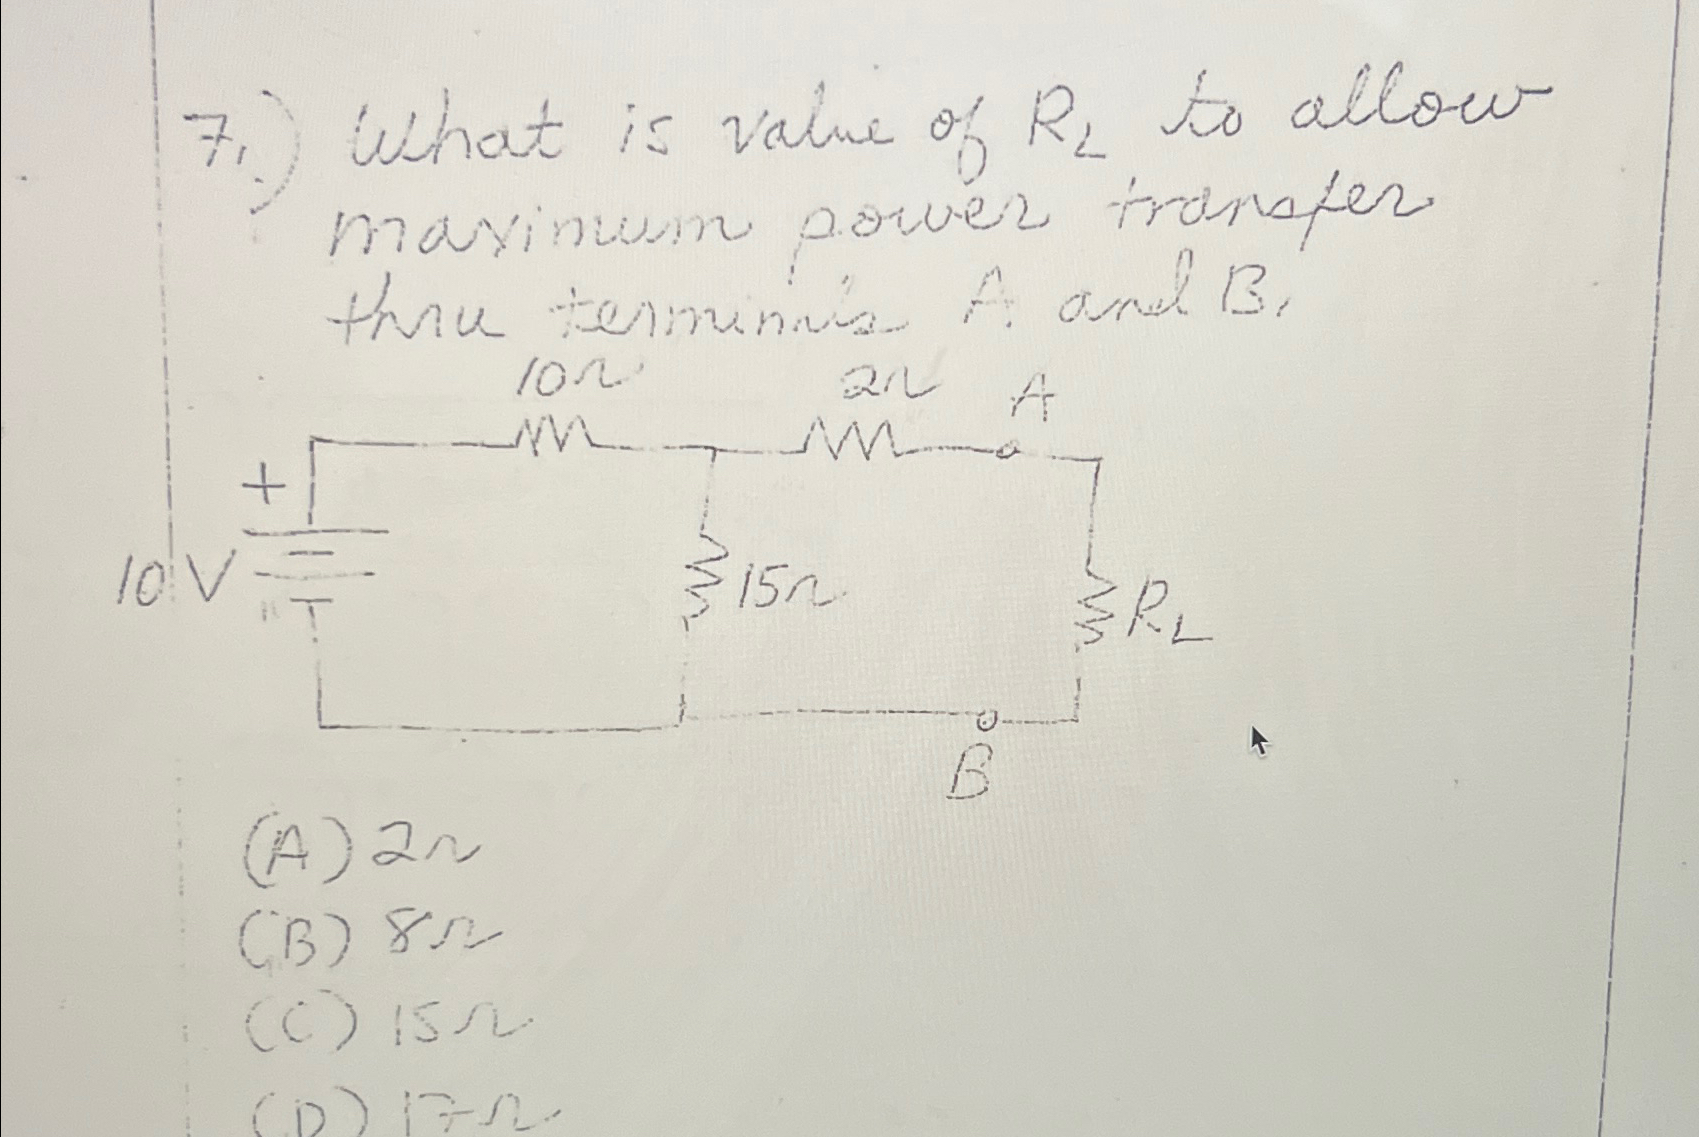 7.) What is value of RL to allow
maximum power transfer
thru A and B.
10Ω 2Ω A
+
10V
15Ω
RL
B
(A) 2Ω
(B) 8Ω
(C) 15Ω
(D) 17Ω